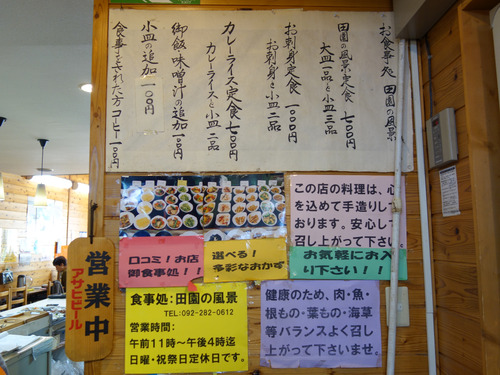 お食事処 田園の風景
田園の風景定食 七〇〇円
大皿一品と小皿三品
お刺身定食 一〇〇〇円
お刺身と小皿二品
カレーライス定食 七〇〇円
カレーライスと小皿二品
御飯・味噌汁の追加 一〇〇円
小皿の追加 一〇〇円
食事をされた方 コーヒー 一〇〇円
この店の料理は、心
を込めて手造りして
おります。安心して
召し上がって下さい。
口コミ！お店
御食事処！！
選べる！
多彩なおかず
お気軽にお入
り下さい！！
食事処：田園の風景
TEL:092-282-0612
営業時間：
午前11時～午後4時迄
日曜・祝祭日定休日です。
健康のため、肉・魚・
根もの・葉もの・海草
等バランスよく召し
上がって下さいませ。
営業中
アサヒビール